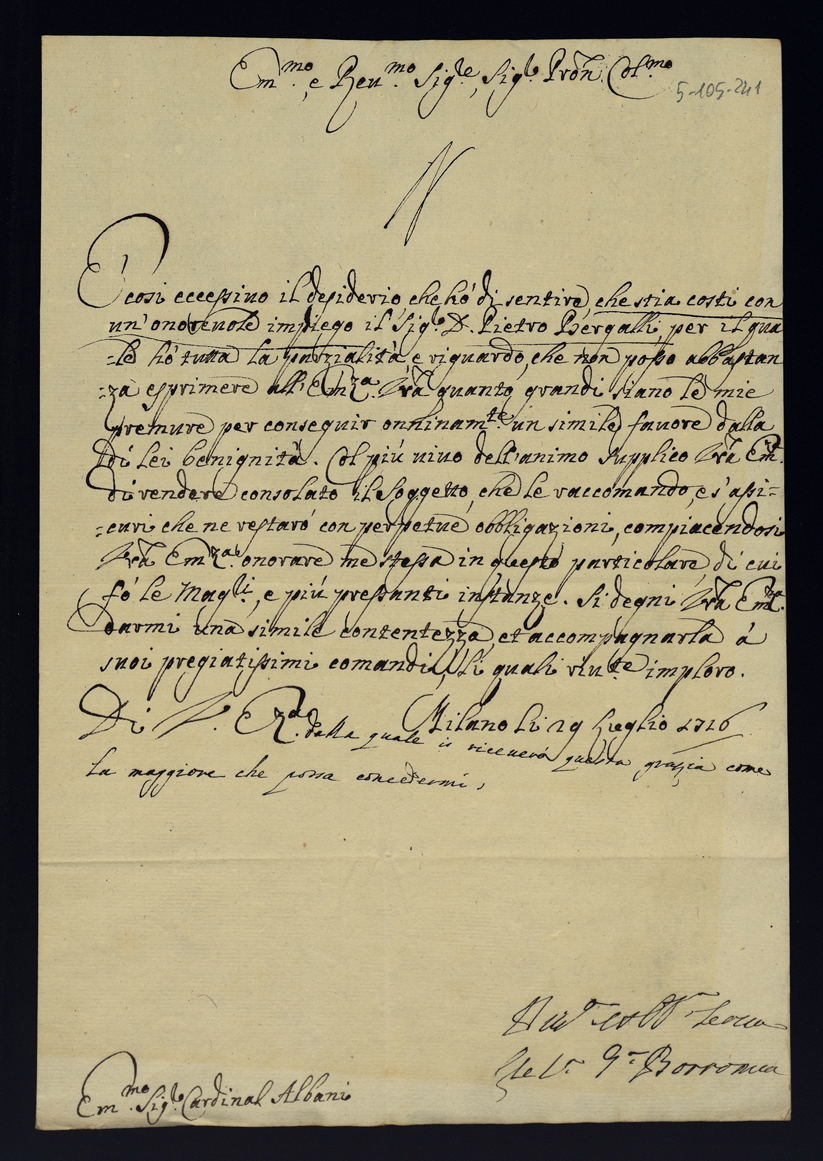 Em.mo, e Reu.mo Sig.re, Sig.re Prõn Col.mo
5-105-241
È così eccessiuo il desiderio che hò di sentire che stia costi con
un' onoreuole impiego il Sig.r D. Pietro Bergalli per il qua
=le hò tutta la parzialità e riguardo, che non posso abbastan
=za esprimere all' Em.za Vrã quanto grandi siano le mie
premure per conseguir onninam.te un simile fauore dalla
di Lei benignità. Col più uiuo dell'animo supplico Vrã Em.
di rendere consolato il Soggetto, che le raccomando, e s' assi=
=curi che ne restarò con perpetue obbligazioni, compiacendosi
Vrã Em.za onorare me stessa in questo particolare, di cui
fò le Mag.ri, e più pressanti instanze. Si degni Vrã Em.
darmi una simile contentezza, et accompagnarla à
suoi pregiatissimi comandi, li quali riu.te imploro.
Di V. E.za Milano li 29 Luglio 1716
dalla quale io riceuerò questa grazia come
la maggiore che possa concedermi,
Borromea
Em.mo Sig.r Cardinal Albani